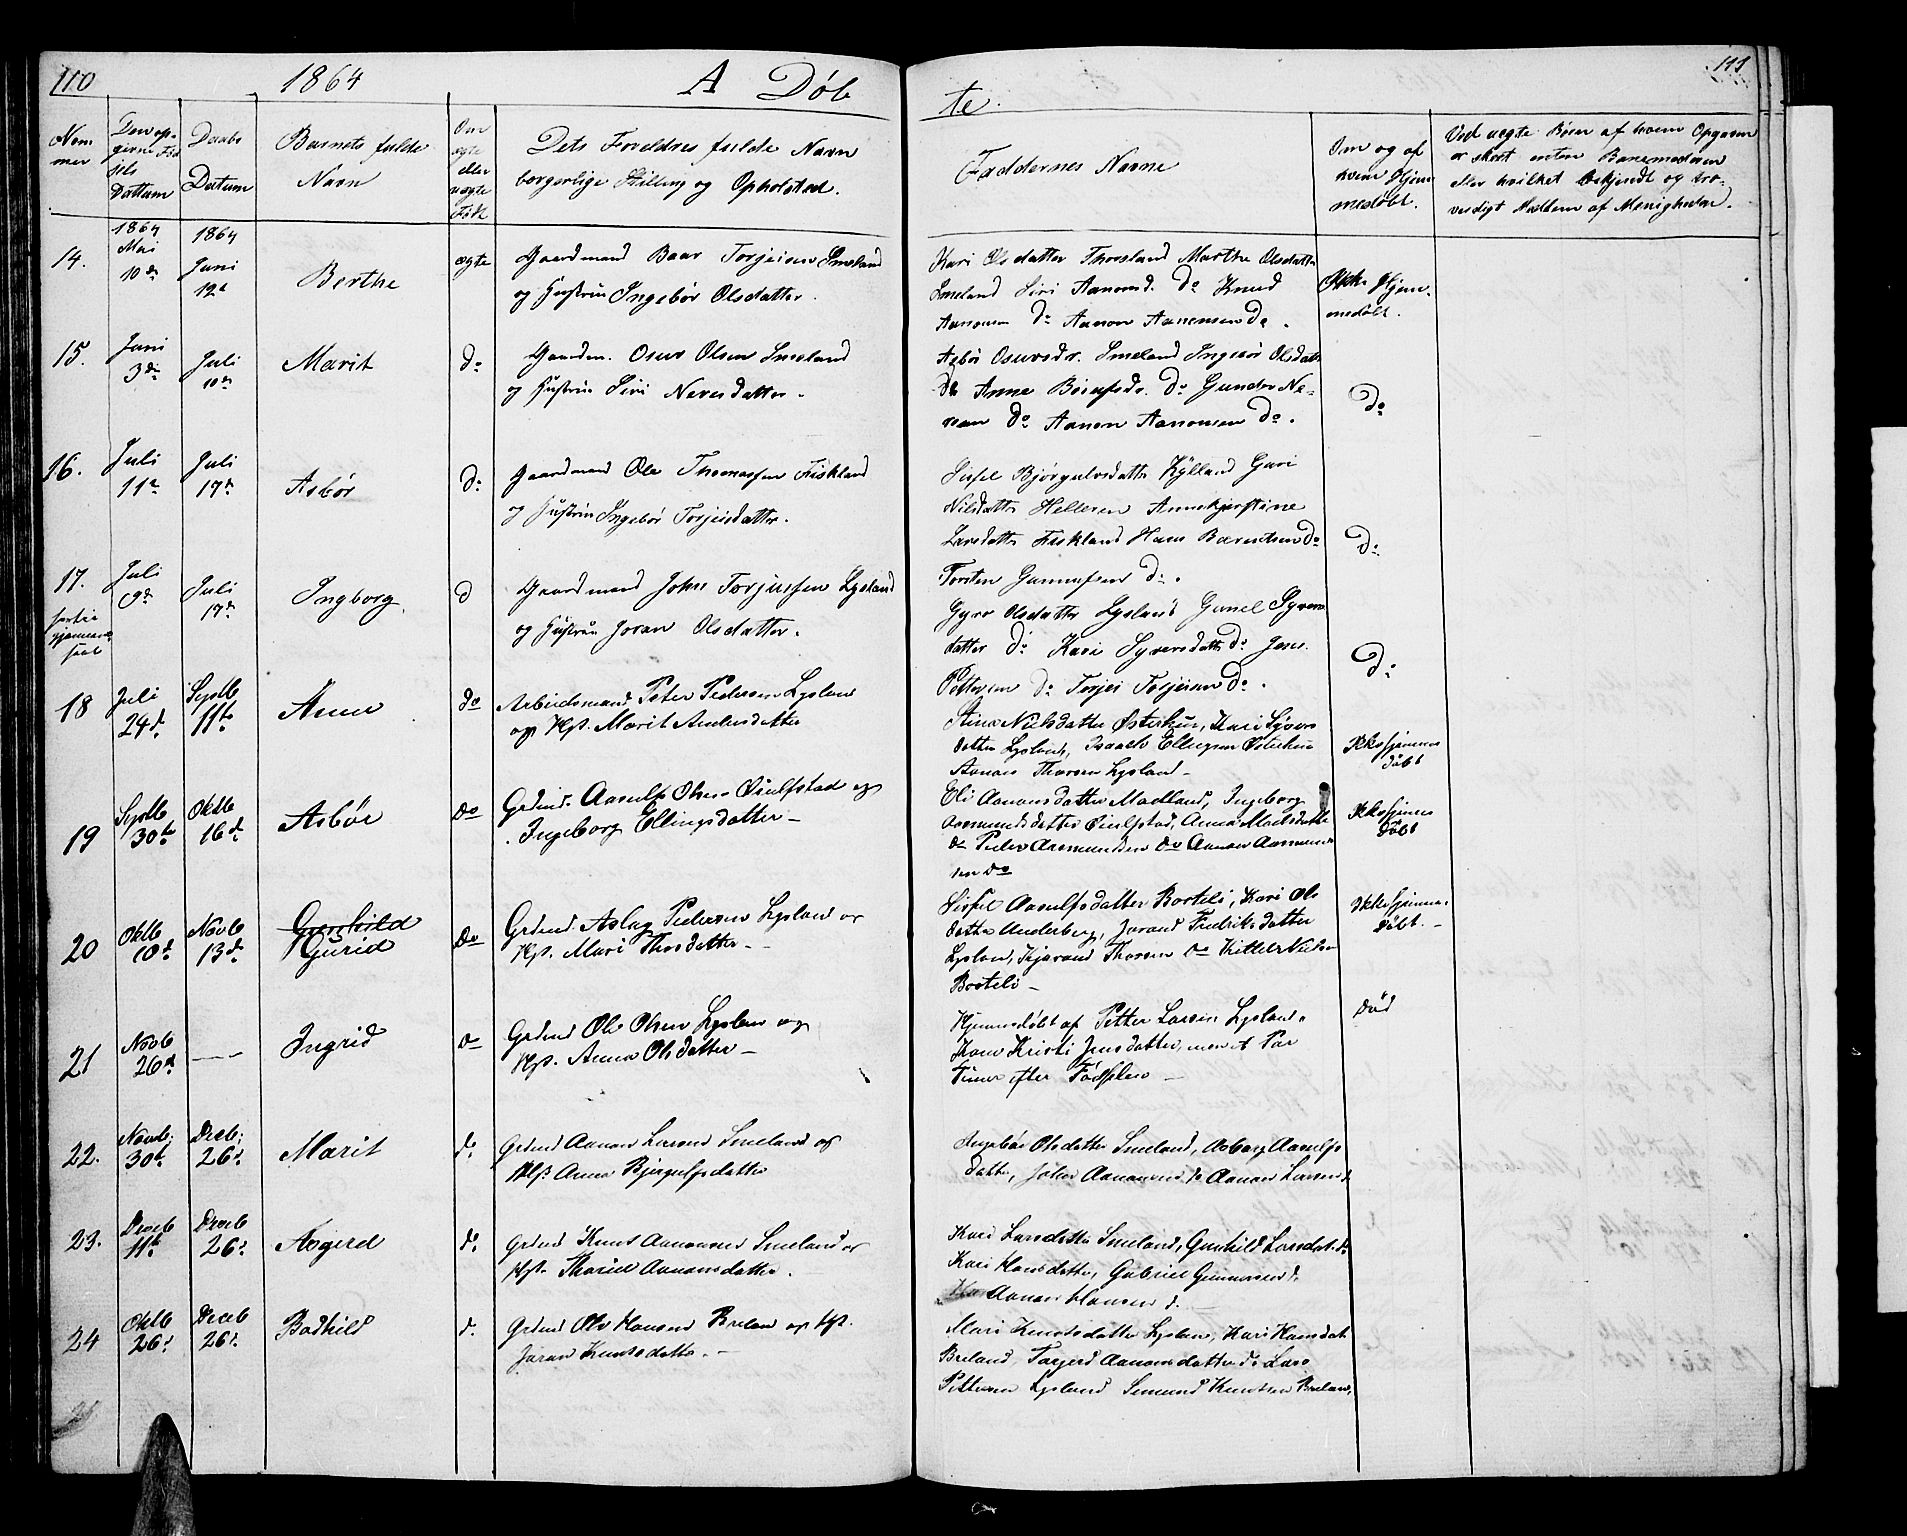 110 1864 A Döb
te. 111
Nom-
mer
Den op-
givne Föd
sels
Dattum
Daabs
Datum
Barnets fulde
Navn
Om
ægte
eller
uægte
Födt
Dets Foreldres fulde Navn
borgerlige Stilling og Opholstad.
Faddernes Navne
Om og af
hvem Hjem
medöbt.
Ved uegte Börn af hvem Opgaven
er skeet enten Barnemoderen
eller hvilket bekjendt og tro-
verdigt Medlem af Menigheden.
14. 1864 Mai 10de 1864 Juni 12te Berthe ægte
Gaardmand Baar Torjeisen Smeland
og Hustrue Ingebör Olsdatter.
Kari Olsdatter Thorsland Marthe Olsdatter
Smeland Siri Aanonsd. Do Knud
Aanonsen Do Aanon Aanensen Do.
Ikke Hjem-
medöbt.
15. Juni 3de Juli 10de Marit Do
Gaardm. Osuv Olsen Smeland
og Hustrue Siri Neresdatter.
Asbör Osuvsdr. Smeland Ingebör Olsdatt
Do Anne Do Gunder Ne-
Do Aanon Aanonsen Do.
Do
16. Juli 11te Juli 17de Asbör Do
Gaardmand Ole Thomassen Fiskland
og Hustrue Ingebör Torjeisdatter.
Sissel Bjørgulvsdatter Kylland Guri
Nilsdatter Helleren Annekjerstine
Larsdatter Fiskland Hans Berentsen Do
Torsten Gunnufsen Do.
Do
17. Juli 9de Juli 17de Ingborg Do
Gaardmand John Torjussen Lysland
og Hustrue Joran Olsdatter.
Gyro Olsdatter Lysland Gunel Syvers
datter Do Kari Syversdatter Do Jens
Pettersen Do Torjei Torjeisen Do.
Do
18 Juli 24d Septb 11te Anne Do
Arbeidsmand Peter Pedersen Lyslan
og Hst. Marit Andersdatter
Stine Nielsdatter Østerhus, Kari Syvers
datter Lysland, Isaach Ellingsen Østerhus
Aanon Thorsen Lysland-
Ikke hjemme
döbt
19 Septb 30te Oktb 16d. Asbör Do
Grdmd. Aasulf Olsen Øiulfstad og
Ingeborg Ellingsdatter-
Eli Aanonsdatter Madland, Ingeborg
Aasmundsdatter Øiulfstad, Anna Madsdatte
Do Peder Aasmundsen Do Aanon Aasmund
sen Do
Ikke hjemme
döbt
20 Oktb 10d. Novb 13d. Gunhild
Gurid Do
Grdmd. Aslag Pedersen Lyslan og
Hst. Mari Thosdatter.-
Sissel Aasulfsdatter Borteli, Kari Ols
datter Underberg, Jorand Fredriksdatter
Lyslan, Kjorand Thorsen Do Kittel Nielsen
Borteli-
Ikke hjemme-
döbt.-
21 Novb 26d. Ingrid Do
Grdmd Ole Olsen Lyslan og
Hst. Anna Olsdatter-
Hjemmedøbt af Petter Larsen Lyslands
Kone Kristi Jensdatter, men et Par
Timer efter Födselen-
död
22. Novb: 30te Deceb: 26d. Marit do.
Grdmd Aanon Larsen Smeland og
Hst. Anna Bjørgulfsdatter
Ingebör Olsdatter Smeland, Asborg Aasulfs
datter, John Aanonsen do Aanon Larsen d.
23. Deceb 11te Deceb 26d. Asgerd do.
Grdmd Knut Aanonsen Smeland og
Hst. Thorid Aanonsdatter.
Kari Larsdatter Smeland, Gunhild Larsdat. do
Kari Hansdatter, Gabriel Gunnersen d.
Aanon Hansen d.
24 Oktb 26d. Deceb 26d. Bodhild d.
Grdmd Ole Hansen Breland og Hst.
Joran Knutsdatter.-
Mari Knutsdatter Lyslan, Kari Hansdat
Breland, Torgerd Aanonsdatter do Lars
Pettersen Lysland Simund Knutsen Brelan.